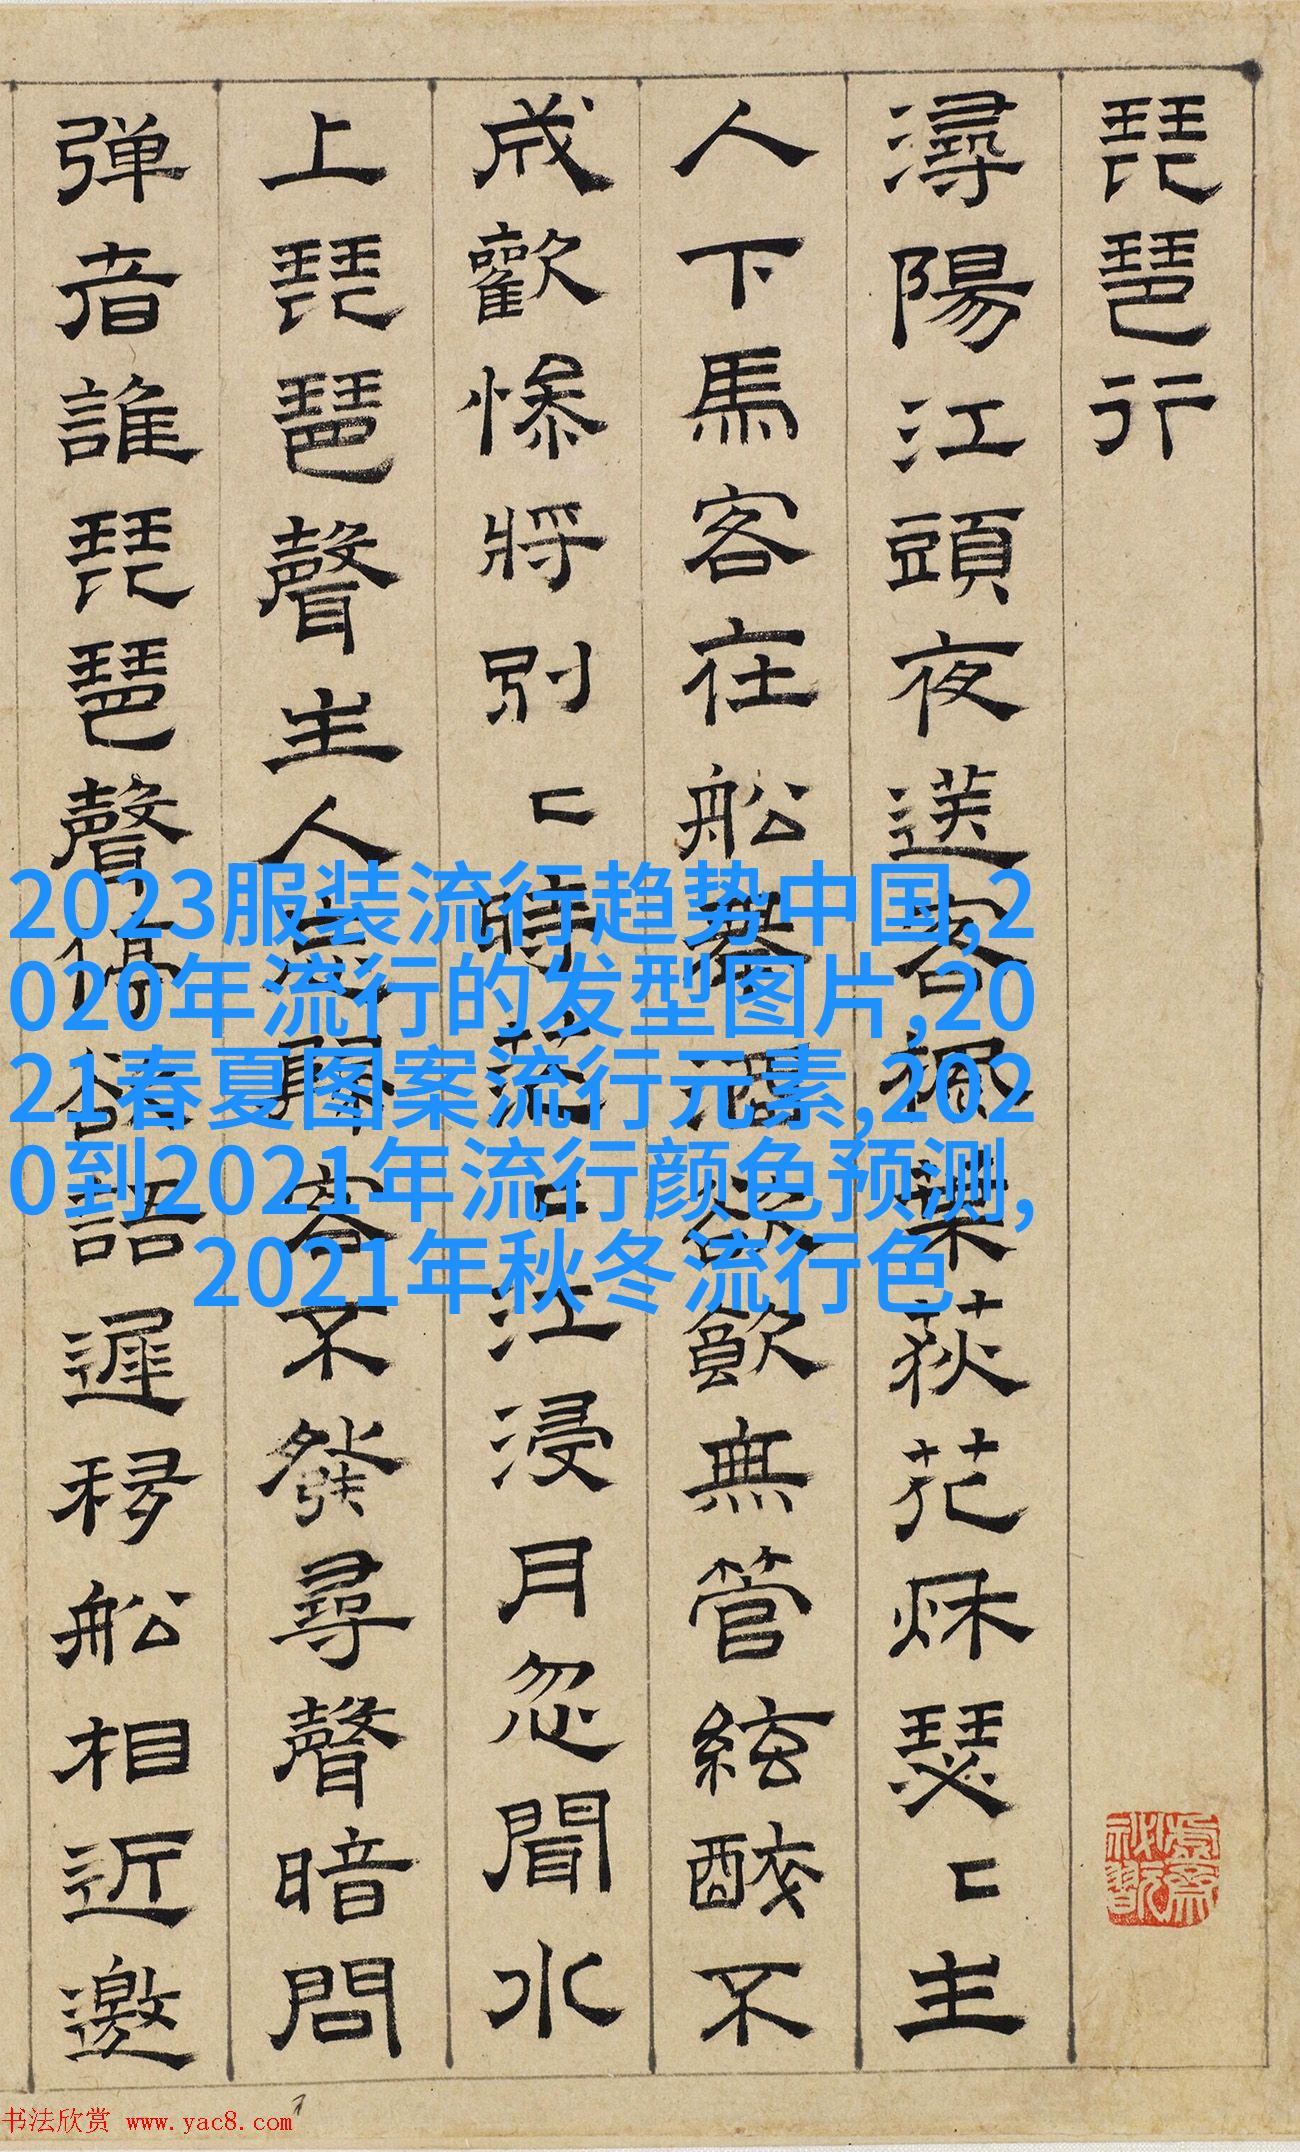 琵琶行
潯陽江頭夜送客楓葉荻花秌瑟〻主
人下馬客在船舉酒欲飲無管絃醉不
成歡慘將別〻時茫〻江浸月忽聞水
上琵琶聲主人忘歸客不發尋聲暗問
弹者誰琵琶聲停欲語遲移船相近邀
2023服装流行趋势中国,2
020年流行的发型图片,20
21春夏图案流行元素,202
0到2021年流行颜色预测,
2021年秋冬流行色
书法欣赏 www.yac8.com